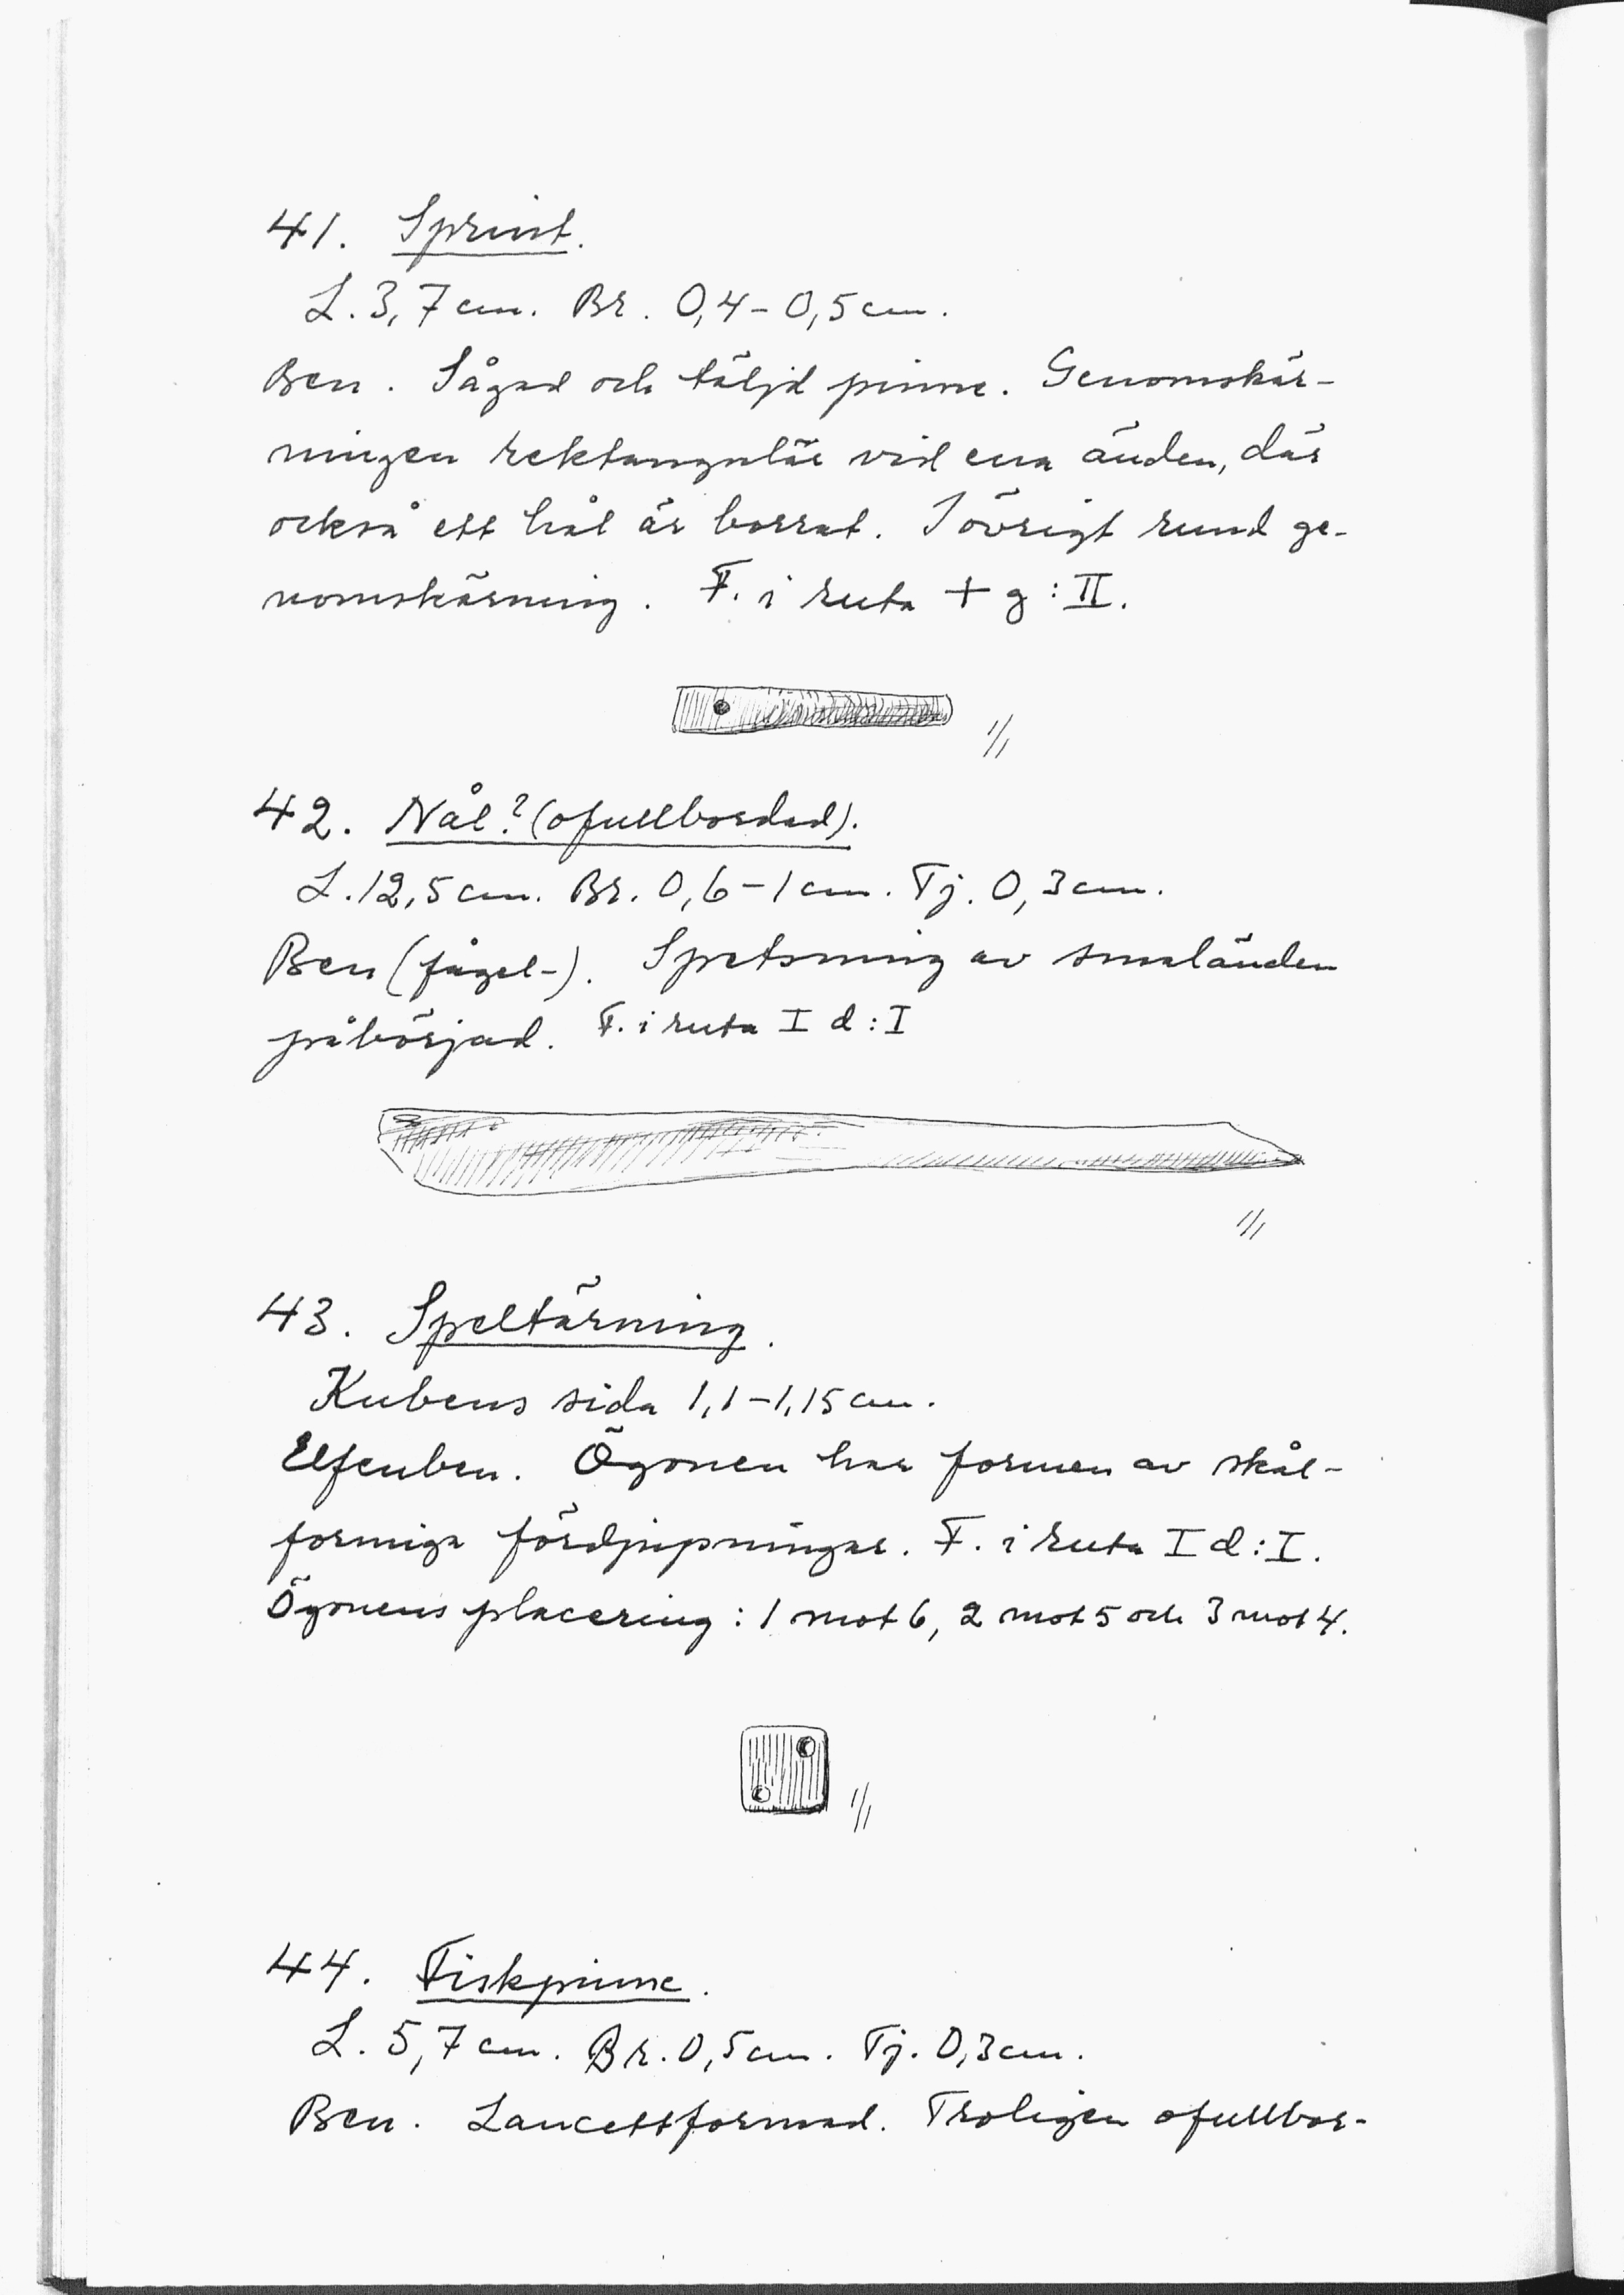 41. Sprint.
L. 3,7 cm. Br. 0,4-0,5 cm.
Ben. Sågad och täljd pinne. Genomskär-
ningen rektangulär vid ena änden, där
också ett hål är borrat. I övrigt rund ge-
nomskärning. F. i ruta + g : II.
1/1
42. Nål? (ofullbordad).
L. 12,5 cm. Br. 0,6-1 cm. Tj. 0,3 cm.
Ben (fågel-). Spetsning av smaländen
påbörjad. F. i ruta I d : I
1/1
43. Speltärning.
Kubens sida 1,1-1,15 cm.
Elfenben. Ögonen har formen av skål-
formiga fördjupningar. F. i ruta I d : I.
Ögonens placering : 1 mot 6, 2 mot 5 och 3 mot 4.
1/1
44. Fiskpinne.
L. 5,7 cm. Br. 0,5 cm. Tj. 0,3 cm.
Ben. Lancettformad. Troligen ofullbor-